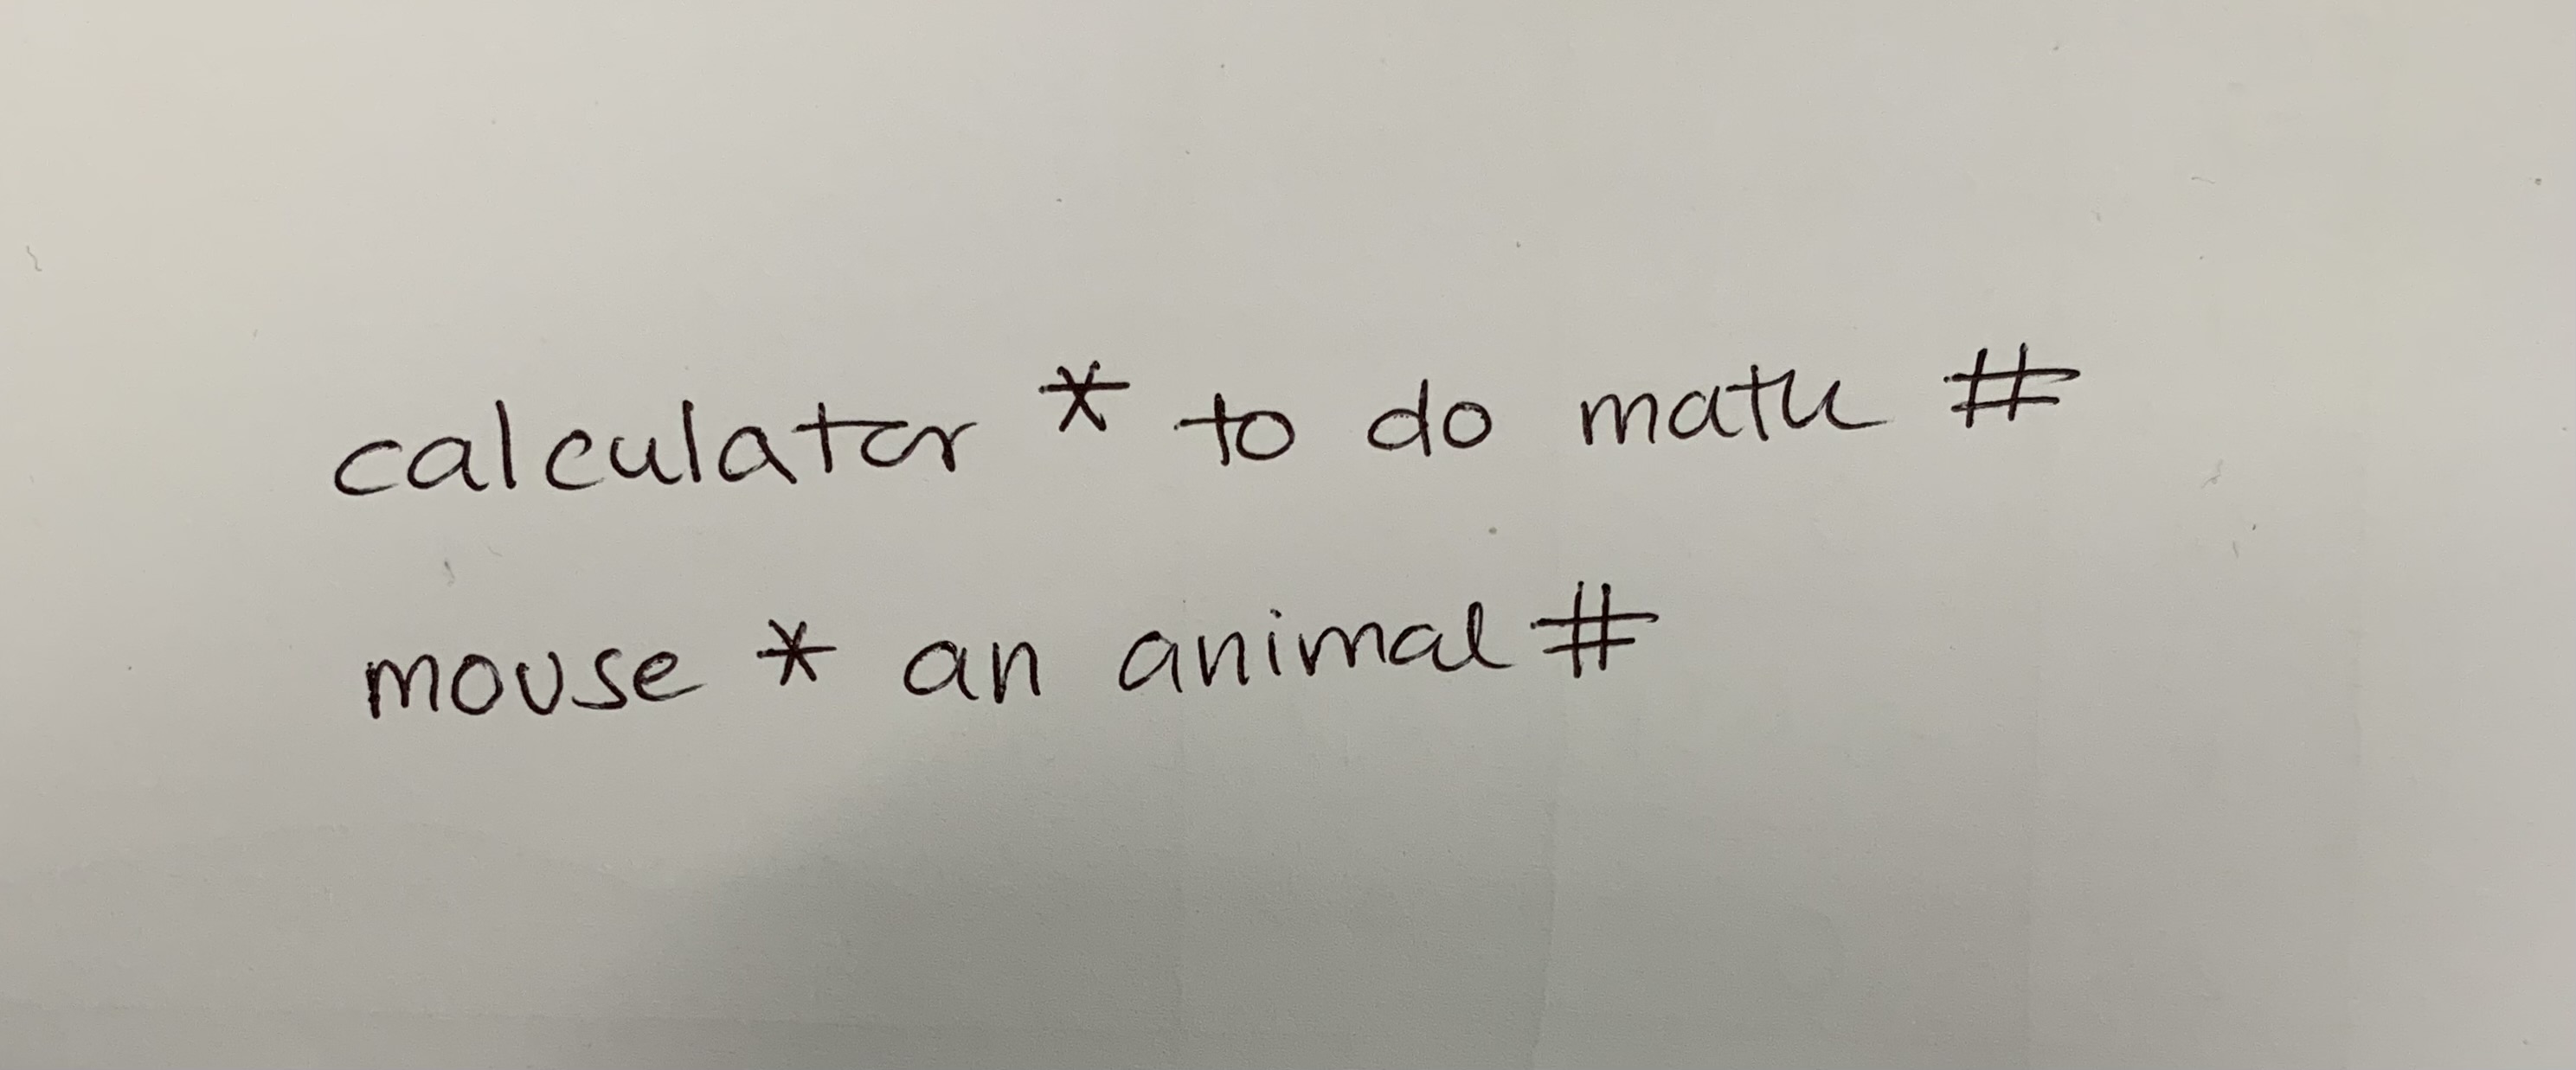 calculator * to do math #
mouse * an animal #